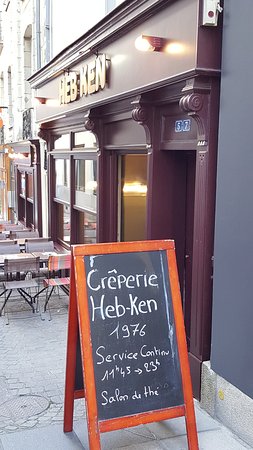 HEB-KEN
5 7
Crêperie
Heb-Ken
1976
Service Continu
11h45 → 23h
Salon de thé